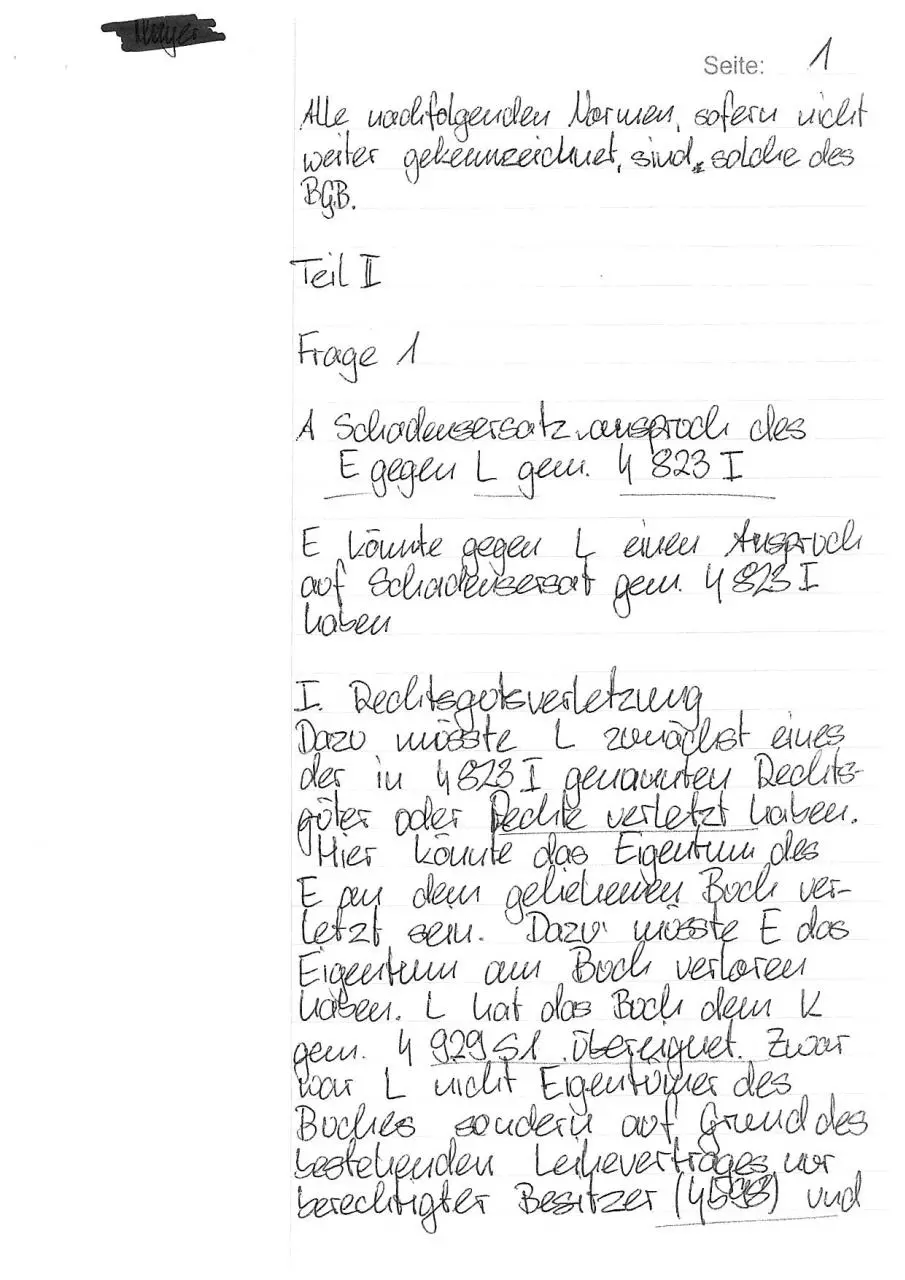 Seite: 1
Alle nachfolgenden Normen, sofern nicht
weiter gekennzeichnet, sind solche des
BGB.
Teil II
Frage 1
A Schadensersatzanspruch des
E gegen L gem. § 823 I
E könnte gegen L einen Anspruch
auf Schadensersat gem. § 823 I
haben
I. Rechtsgutsverletzung
Dazu müsste L zunächst eines
der in § 823 I genannten Rechts-
güter oder Rechte verletzt haben.
Hier könnte das Eigentum des
E an dem geliehenen Buch ver-
letzt sein. Dazu müsste E das
Eigentum am Buch verloren
haben. L hat das Buch dem K
gem. § 929 S1 übereignet. Zwar
war L nicht Eigentümer des
Buches sondern auf Grund des
bestehenden Leihevertrages nur
berechtigter Besitzer (§ 598) und